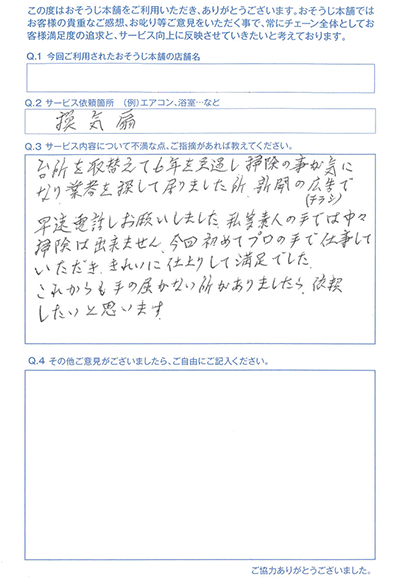 この度はおそうじ本舗をご利用いただき、ありがとうございます。おそうじ本舗では
お客様の貴重なご感想、お叱り等ご意見をいただく事で、常にチェーン全体としてお
客様満足度の追求と、サービス向上に反映させていきたいと考えております。
Q.1 今回ご利用されたおそうじ本舗の店舗名
Q.2 サービス依頼箇所 （例）エアコン、浴室…など
換気扇
Q.3 サービス内容について不満な点、ご指摘があれば教えてください。
台所を取替えて6年を経過し掃除の事が気に
なり業者を探して居りました所、新聞の広告で
(チラシ)
早速電話しお願いしました。私等素人の手では中々
掃除は出来ません。今回初めてプロの手で仕事して
いただき、きれいに仕上りして満足でした。
これからも手の届かない所がありましたら、依頼
したいと思います。
Q.4 その他ご意見がございましたら、ご自由にご記入ください。
ご協力ありがとうございました。